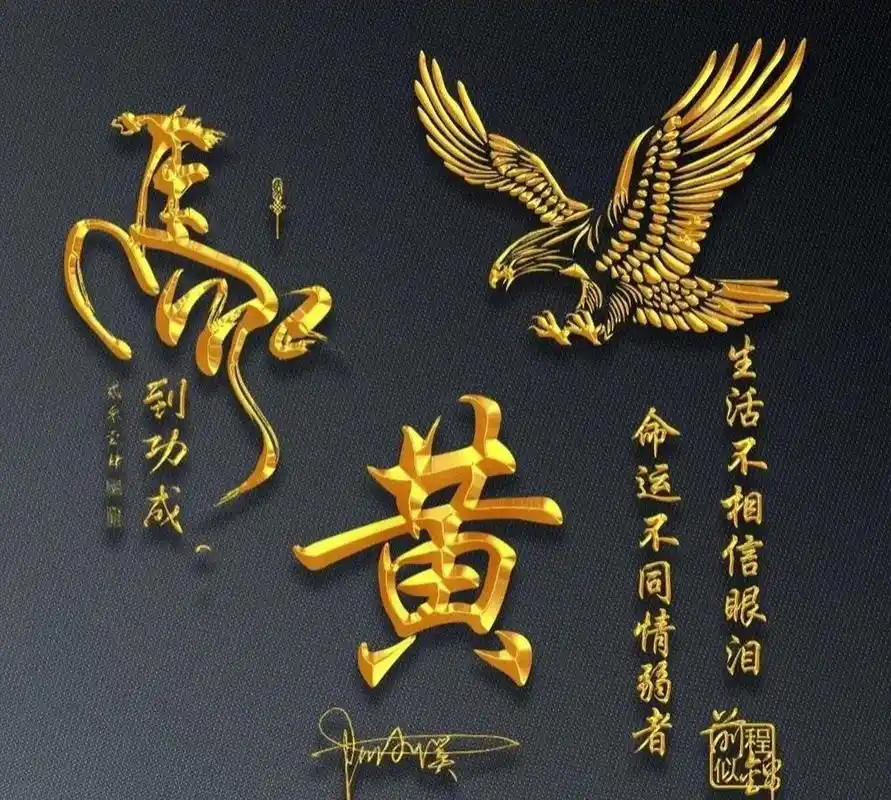 馬
到功成
黄
生活不相信眼泪
命运不同情弱者
前程似锦